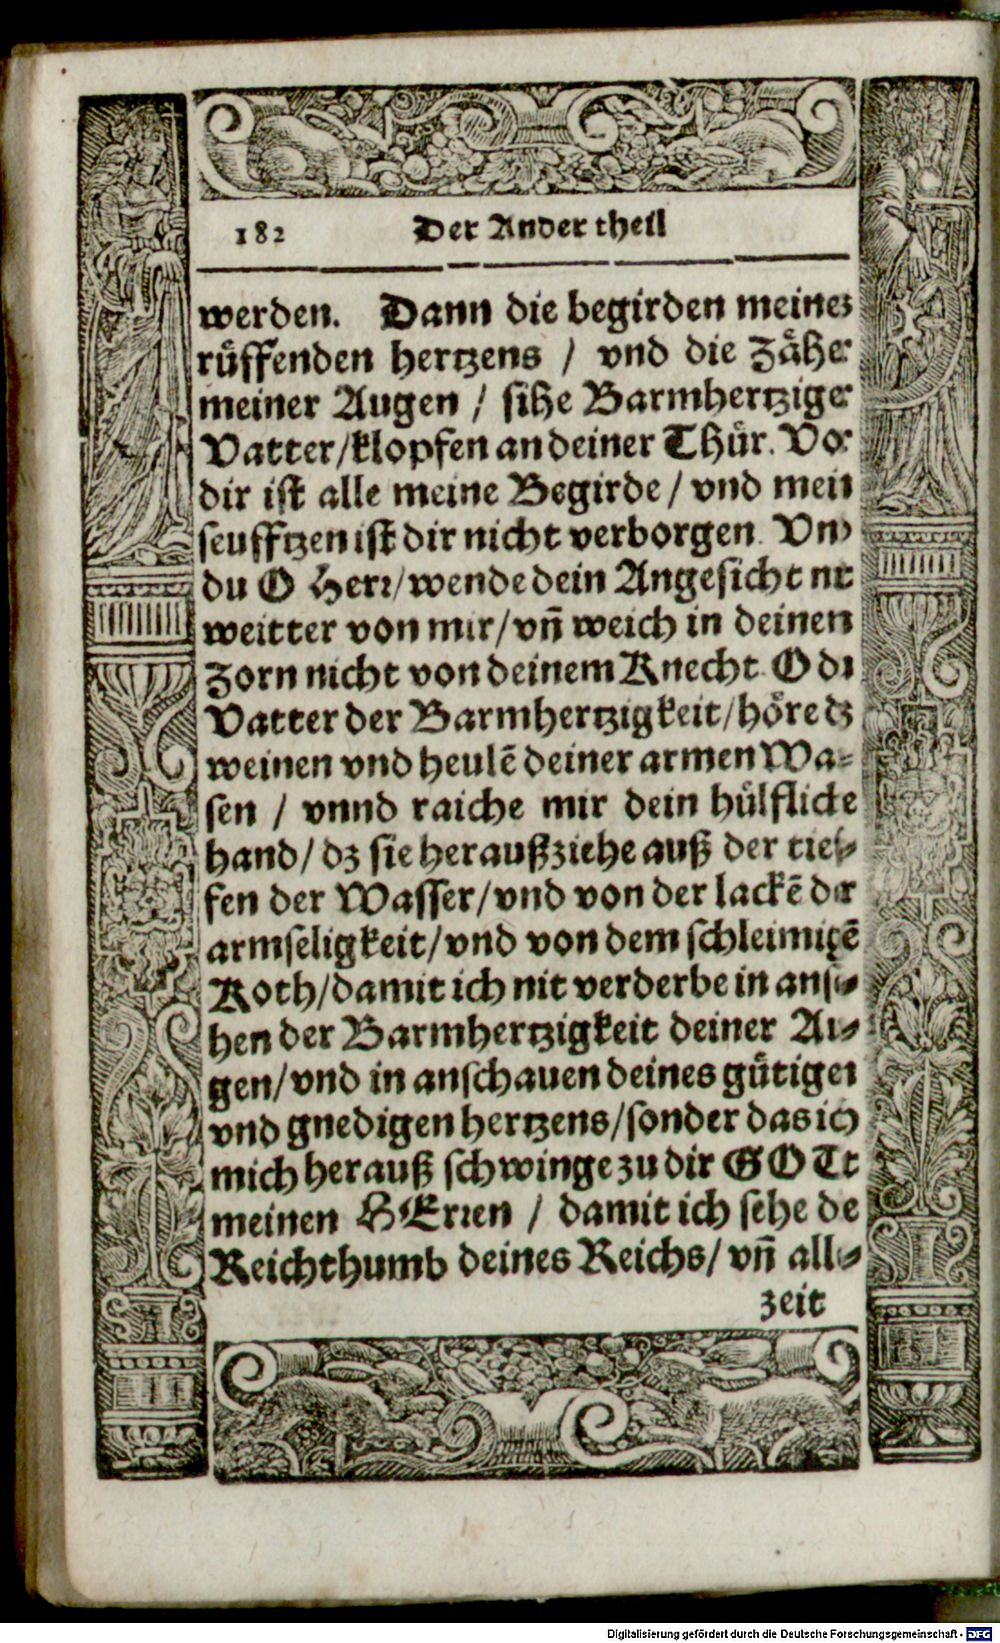 182 Der Ander theil
werden. Dann die begirden meines
rüffenden hertzens / vnd die Zäher
meiner Augen / sihe Barmhertziger
Vatter/klopfen an deiner Thür. Vor
dir ist alle meine Begirde / vnd mein
seufftzen ist dir nicht verborgen. Vnd
du O Herr/wende dein Angesicht nit
weitter von mir/vñ weich in deinem
Zorn nicht von deinem Knecht. O du
Vatter der Barmhertzigkeit/höre dz
weinen vnd heulẽ deiner armen Wa-
sen / vnnd raiche mir dein hülfliche
hand/dz sie herauß ziehe auß der tief-
fen der Wasser/vnd von der lackẽ der
armseligkeit/vnd von dem schleimigẽ
Koth/damit ich nit verderbe in anse-
hen der Barmhertzigkeit deiner Au-
gen/vnd in anschauen deines gütigen
vnd gnedigen hertzens/sonder das ich
mich herauß schwinge zu dir GOTt
meinen HErren / damit ich sehe de
Reichthumb deines Reichs/ vñ alle-
zeit
Digitalisierung gefördert durch die Deutsche Forschungsgemeinschaft - DFG